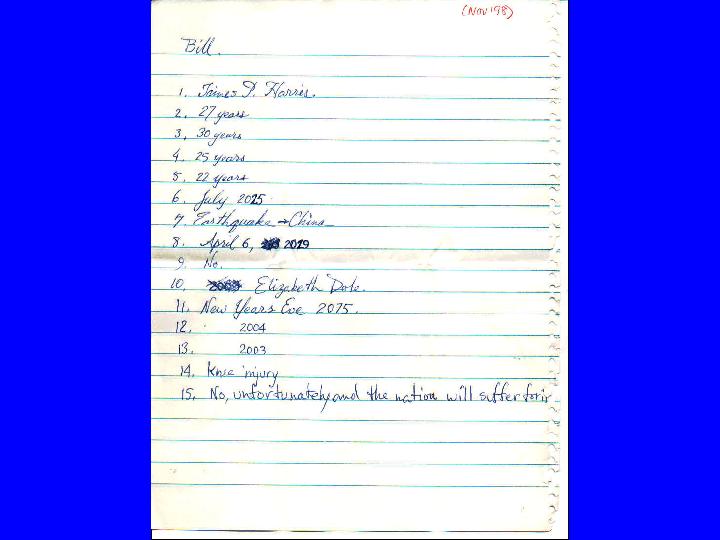 (Nov '98)
Bill.
1. James P. Harris.
2. 27 years
3. 30 years
4. 25 years
5. 22 years
6. July 2025
7. Earthquake → China
8. April 6, 2029
9. No.
10. Elizabeth Dole.
11. New Years Eve 2075.
12. 2004
13. 2003
14. Knee injury
15. No, unfortunately and the nation will suffer for it